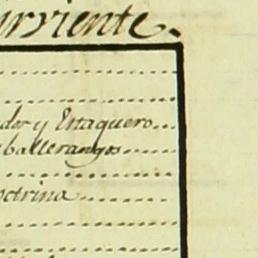 irviente.
dor y Estaquero
ballerangos
octrina